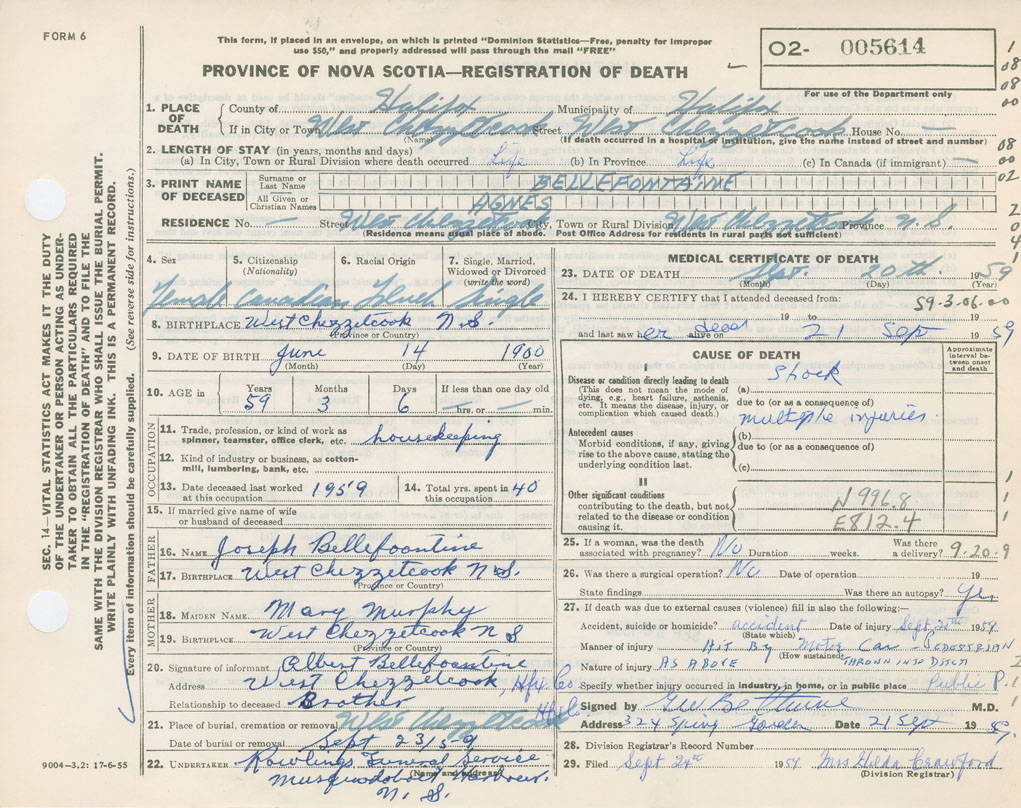 FORM 6
This form, if placed in an envelope, on which is printed "Dominion Statistics—Free, penalty for improper
use $50," and properly addressed will pass through the mail "FREE"
PROVINCE OF NOVA SCOTIA—REGISTRATION OF DEATH
O2- 005614
For use of the Department only
1
08
08
00
08
00
02
2
0
4
1
SEC. 14—VITAL STATISTICS ACT MAKES IT THE DUTY
OF THE UNDERTAKER OR PERSON ACTING AS UNDER-
TAKER TO OBTAIN ALL THE PARTICULARS REQUIRED
IN THE "REGISTRATION OF DEATH" AND TO FILE THE
SAME WITH THE DIVISION REGISTRAR WHO SHALL ISSUE THE BURIAL PERMIT.
WRITE PLAINLY WITH UNFADING INK. THIS IS A PERMANENT RECORD.
Every item of information should be carefully supplied. (See reverse side for instructions.)
1. PLACE OF DEATH
County of Halifax Municipality of Halifax
If in City or Town West Chezzetcook Street West Chezzetcook House No. —
(Name) (If death occurred in a hospital or institution, give the name instead of street and number)
2. LENGTH OF STAY (in years, months and days)
(a) In City, Town or Rural Division where death occurred Life (b) In Province Life (c) In Canada (if immigrant) —
3. PRINT NAME OF DECEASED
Surname or Last Name BELLEFONTAINE
All Given or Christian Names AGNES
RESIDENCE No. — Street West Chezzetcook City, Town or Rural Division West Chezzetcook Province N.S.
(Residence means usual place of abode. Post Office Address for residents in rural parts not sufficient)
4. Sex 5. Citizenship (Nationality) 6. Racial Origin 7. Single, Married, Widowed or Divorced (write the word)
Female Canadian single
8. BIRTHPLACE West Chezzetcook N.S.
(Province or Country)
9. DATE OF BIRTH June 14 1900
(Month) (Day) (Year)
10. AGE in Years 59 Months 3 Days 6 If less than one day old — hrs. or — min.
OCCUPATION
11. Trade, profession, or kind of work as spinner, teamster, office clerk, etc. housekeeping
12. Kind of industry or business, as cotton-mill, lumbering, bank, etc.
13. Date deceased last worked at this occupation 1959 14. Total yrs. spent in this occupation 40
15. If married give name of wife or husband of deceased
FATHER
16. NAME Joseph Bellefoontine
17. BIRTHPLACE West Chezzetcook N.S.
(Province or Country)
MOTHER
18. MAIDEN NAME Mary Murphy
19. BIRTHPLACE West Chezzetcook N S
(Province or Country)
20. Signature of informant Albert Bellefoontine
Address West Chezzetcook, Hfx. Co
Relationship to deceased Brother
21. Place of burial, cremation or removal West Chezzetcook
Date of burial or removal Sept 23/59
22. UNDERTAKER Rowlings Funeral Service
(Name and address)
Musquodoboit Harbour.
N. S.
9004-3.2: 17-6-55
MEDICAL CERTIFICATE OF DEATH
23. DATE OF DEATH Sept. 20th 1959
(Month) (Day) (Year)
24. I HEREBY CERTIFY that I attended deceased from: 59-3-06-00
19 to 19
and last saw her dead alive on 21 Sept 59
CAUSE OF DEATH
Approximate interval between onset and death
I
Disease or condition directly leading to death
(This does not mean the mode of dying, e.g., heart failure, asthenia, etc. It means the disease, injury, or complication which caused death.)
(a) Shock
due to (or as a consequence of)
multiple injuries.
Antecedent causes
Morbid conditions, if any, giving rise to the above cause, stating the underlying condition last.
(b)
due to (or as a consequence of)
(c)
II
Other significant conditions
contributing to the death, but not related to the disease or condition causing it.
N996.8
E812.4
25. If a woman, was the death associated with pregnancy? No Duration weeks. Was there a delivery? 9-20-9
26. Was there a surgical operation? No Date of operation 19
State findings Was there an autopsy? Yes
27. If death was due to external causes (violence) fill in also the following:—
Accident, suicide or homicide? accident Date of injury Sept. 20th 1959
(State which)
Manner of injury HIT BY Motor Car - PEDESTRIAN
(How sustained)
THROWN INTO DITCH
Nature of injury AS ABOVE
Specify whether injury occurred in industry, in home, or in public place Public P.
Signed by M.D.
Address 324 Spring Garden Date 21 Sept 1959
28. Division Registrar's Record Number
29. Filed Sept 24th 1959 Mrs Hilda Crawford
(Division Registrar)